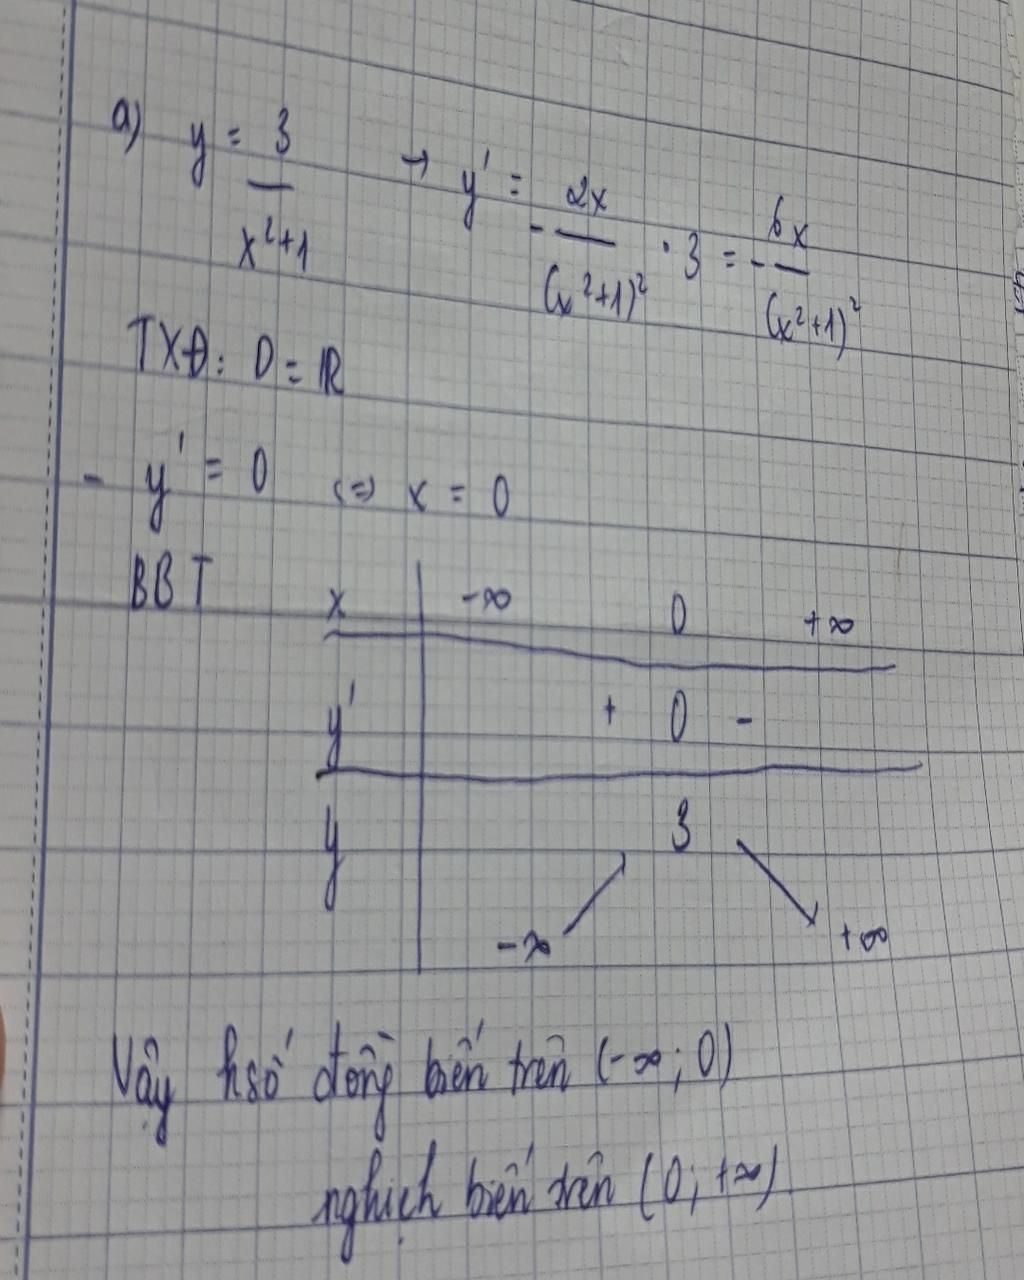 a) y = 3/(x²+1) → y' = - 2x/(x²+1)² · 3 = - 6x/(x²+1)²
TXĐ: D = ℝ
- y' = 0 <=> x = 0
BBT
x -∞ 0 +∞
y' + 0 -
y 3
-∞ +∞
Vậy hsố đồng biến trên (-∞; 0)
nghịch biến trên (0; +∞)